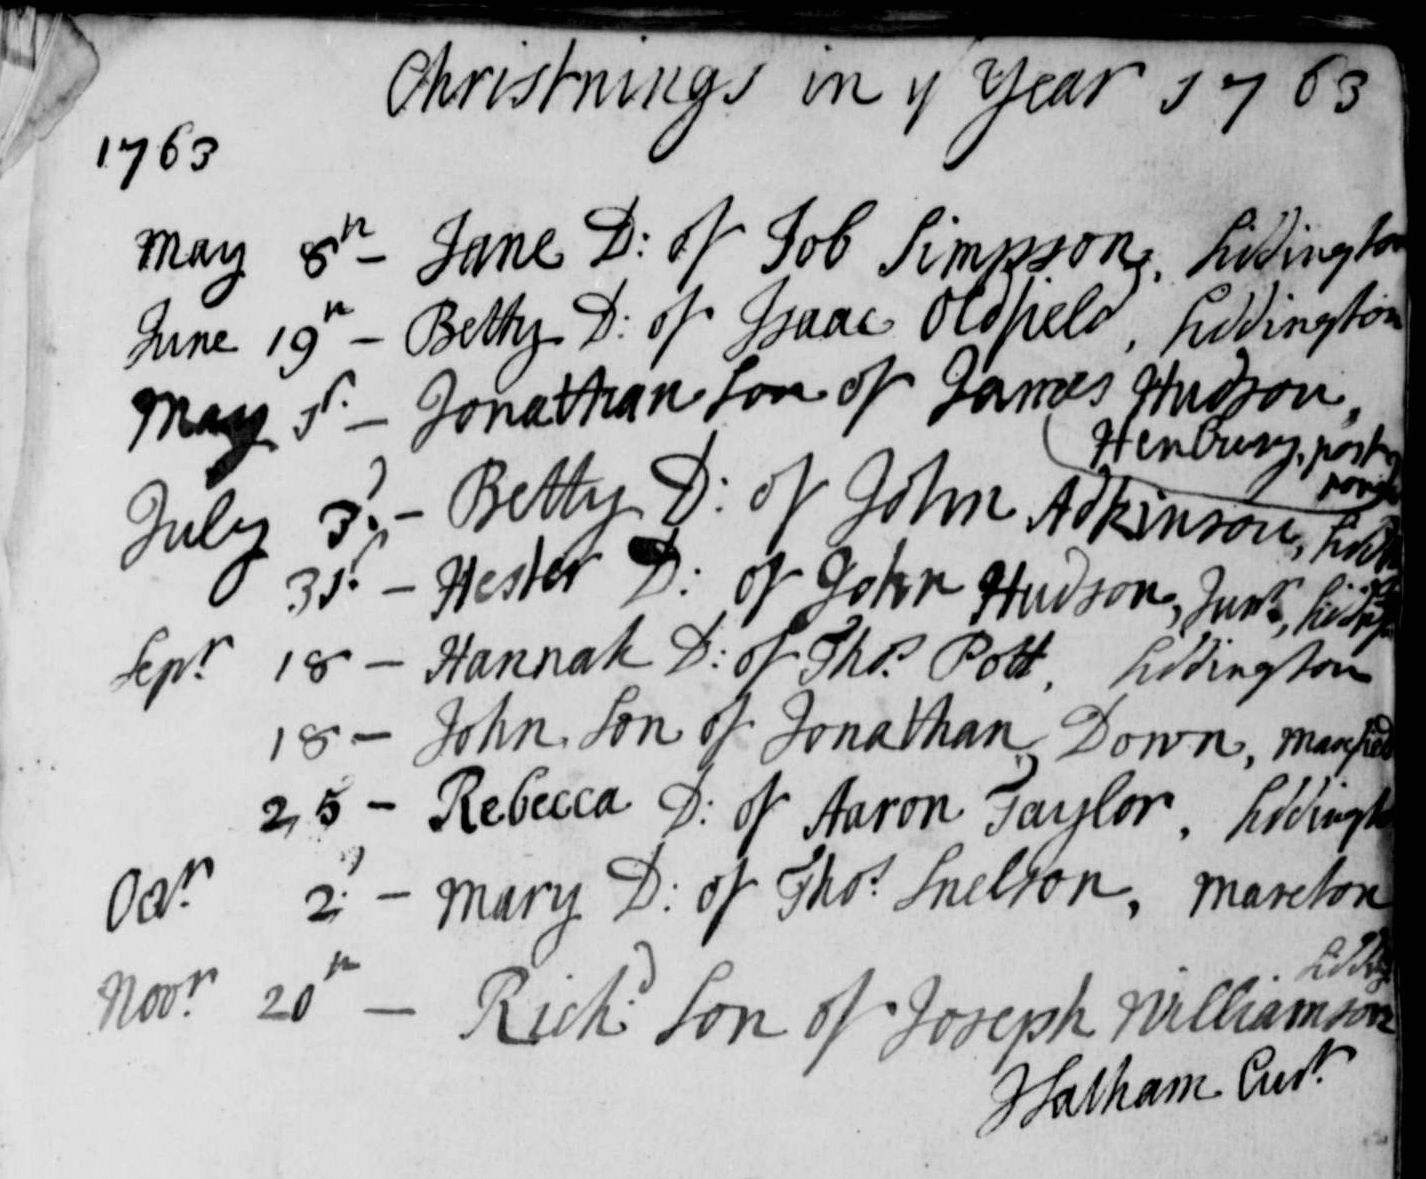 Christnings in yͤ Year 1763
1763
May 8th - Jane D: of Job Simpson, Siddington
June 19th - Betty D: of Isaac Oldfield, Siddington
May 1st. - Jonathan Son of James Hudson,
Henbury, post
July 3d. - Betty D: of John Adkinson,
31st. - Hester D: of John Hudson, Junr.,
Sepr. 18 - Hannah D: of Thos. Pott, Siddington
18 - John Son of Jonathan Down,
25 - Rebecca D: of Aaron Taylor, Siddington
Octr. 2d. - Mary D: of Thos. Snelson, Mareton
Novr. 20th - Richd. Son of Joseph Williamson
Latham Curt.